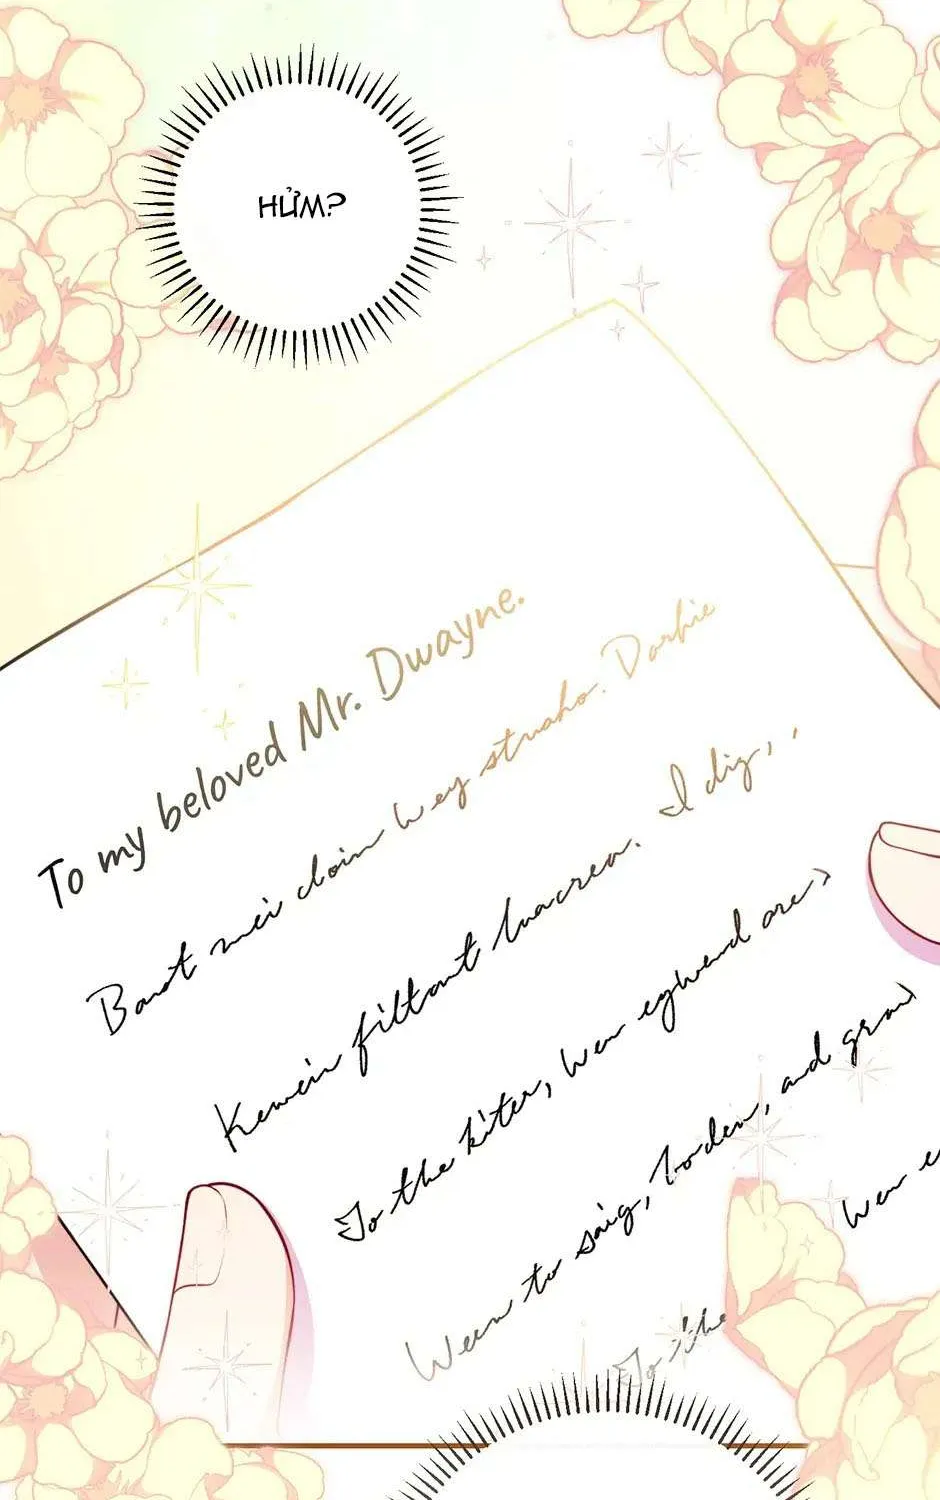 HỬM?
To my beloved Mr. Dwayne.
Baot mei cloin Wey struaho. Dorhie
Kemein filtant luacrea. I dig, ,
To the kiter, Wen egwend are
Ween to saig, Torden, and grow
Wen
To the